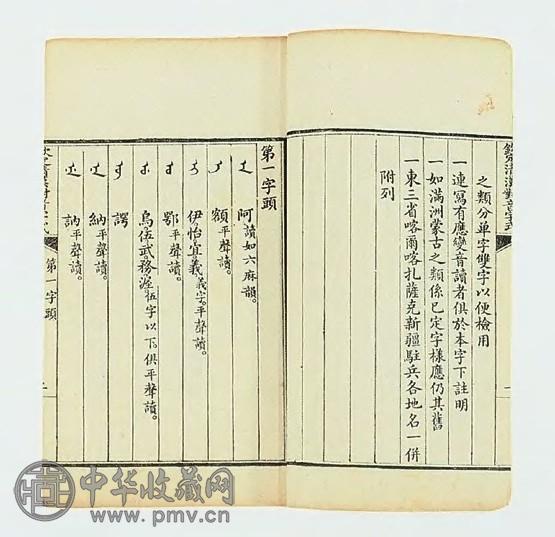 欽定清漢對音字式
之類分單字雙字以便檢用
一連寫有應變音讀者俱於本字下註明
一如滿洲蒙古之類係已定字樣應仍其舊
一東三省喀爾喀扎薩克新疆駐兵各地名一併
附列
第一字頭
阿讀如六麻韻。
額平聲讀。
伊怡宜義義字平聲讀。
鄂平聲讀。
烏伍武務渥伍字以下俱平聲讀。
諤
納平聲讀。
訥平聲讀。
第一字頭
二
中华收藏网
www.pmv.cn